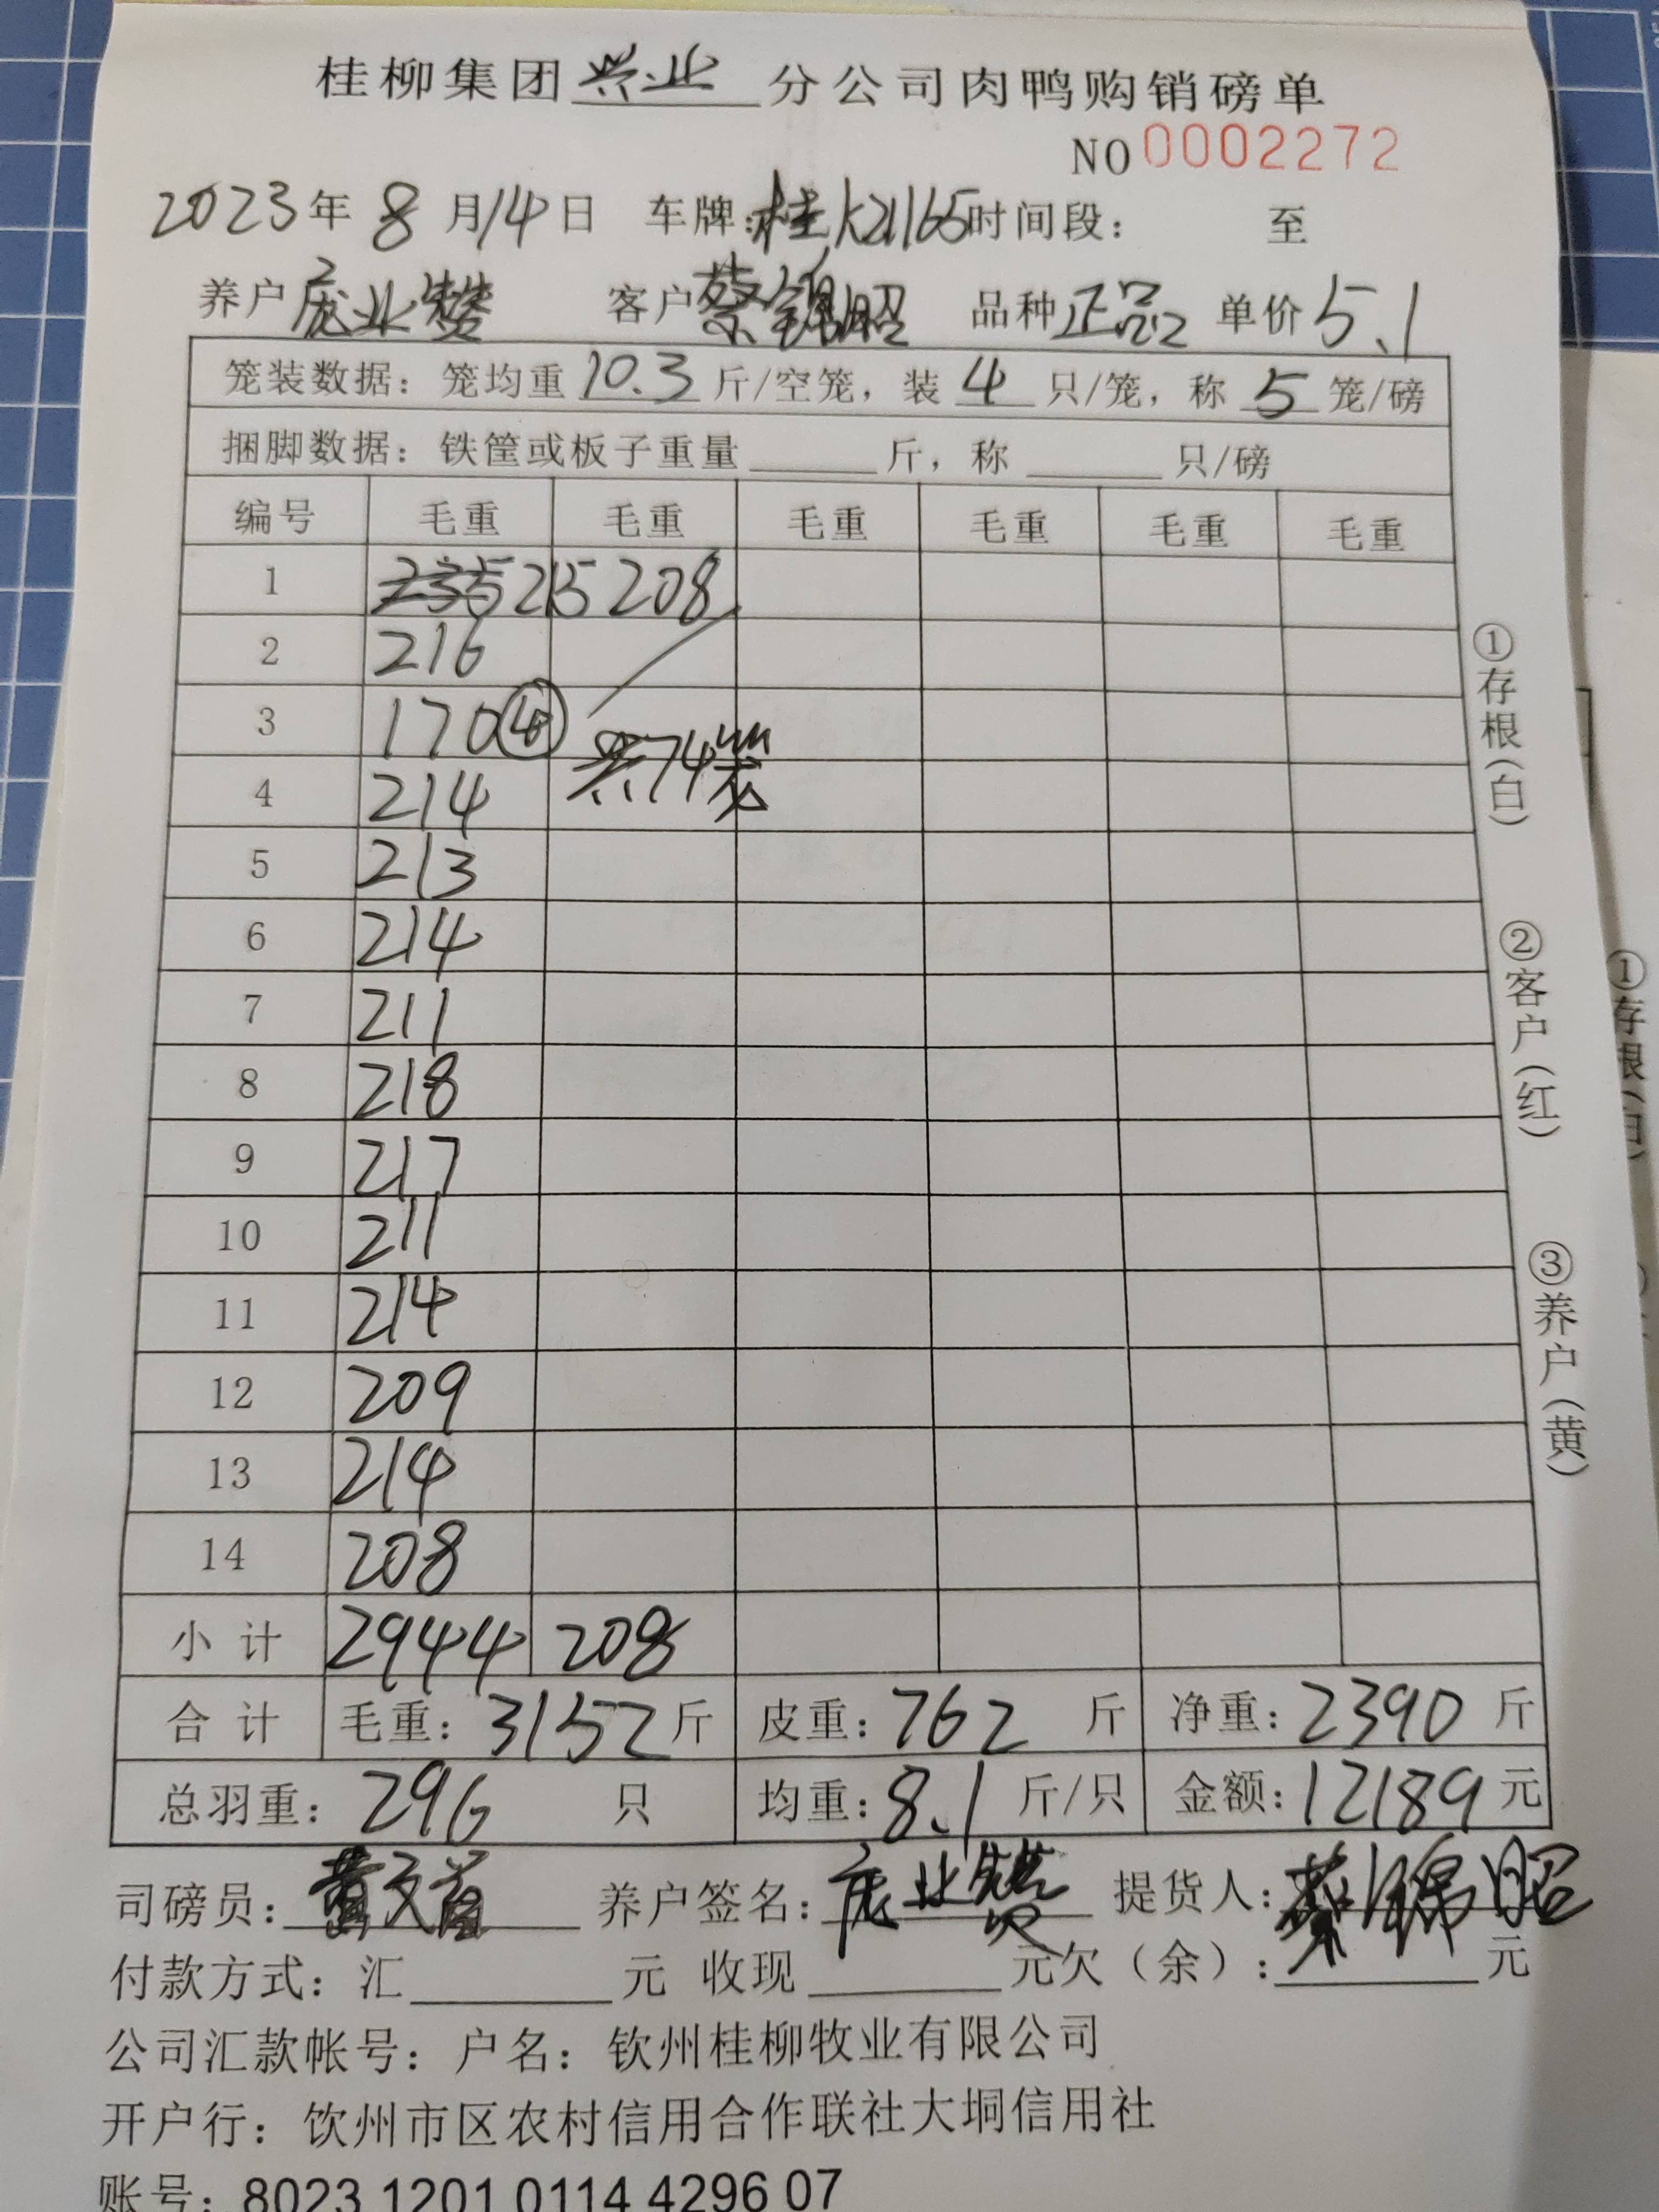 桂柳集团兴业分公司肉鸭购销磅单
NO 0002272
2023年 8月14日 车牌:桂K21165 时间段: 至
养户 庞业赞 客户 蔡锦昭 品种 正品 单价 5.1
笼装数据: 笼均重 10.3 斤/空笼, 装 4 只/笼, 称 5 笼/磅
捆脚数据: 铁筐或板子重量 ______ 斤, 称 ______ 只/磅
编号 毛重 毛重 毛重 毛重 毛重 毛重
1 235 215 208
2 216
3 170 ④ 共74笼
4 214
5 213
6 214
7 211
8 218
9 217
10 211
11 214
12 209
13 214
14 208
小计 2944 208
合计 毛重: 3152 斤 皮重: 762 斤 净重: 2390 斤
总羽重: 296 只 均重: 8.1 斤/只 金额: 12189 元
司磅员: 黄 养户签名: 庞业赞 提货人: 蔡锦昭
付款方式: 汇______元 收现______元欠(余):______元
公司汇款帐号: 户名: 钦州桂柳牧业有限公司
开户行: 饮州市区农村信用合作联社大垌信用社
账号: 8023 1201 0114 4296 07
①存根(白)
②客户(红)
③养户(黄)
①存根(白)